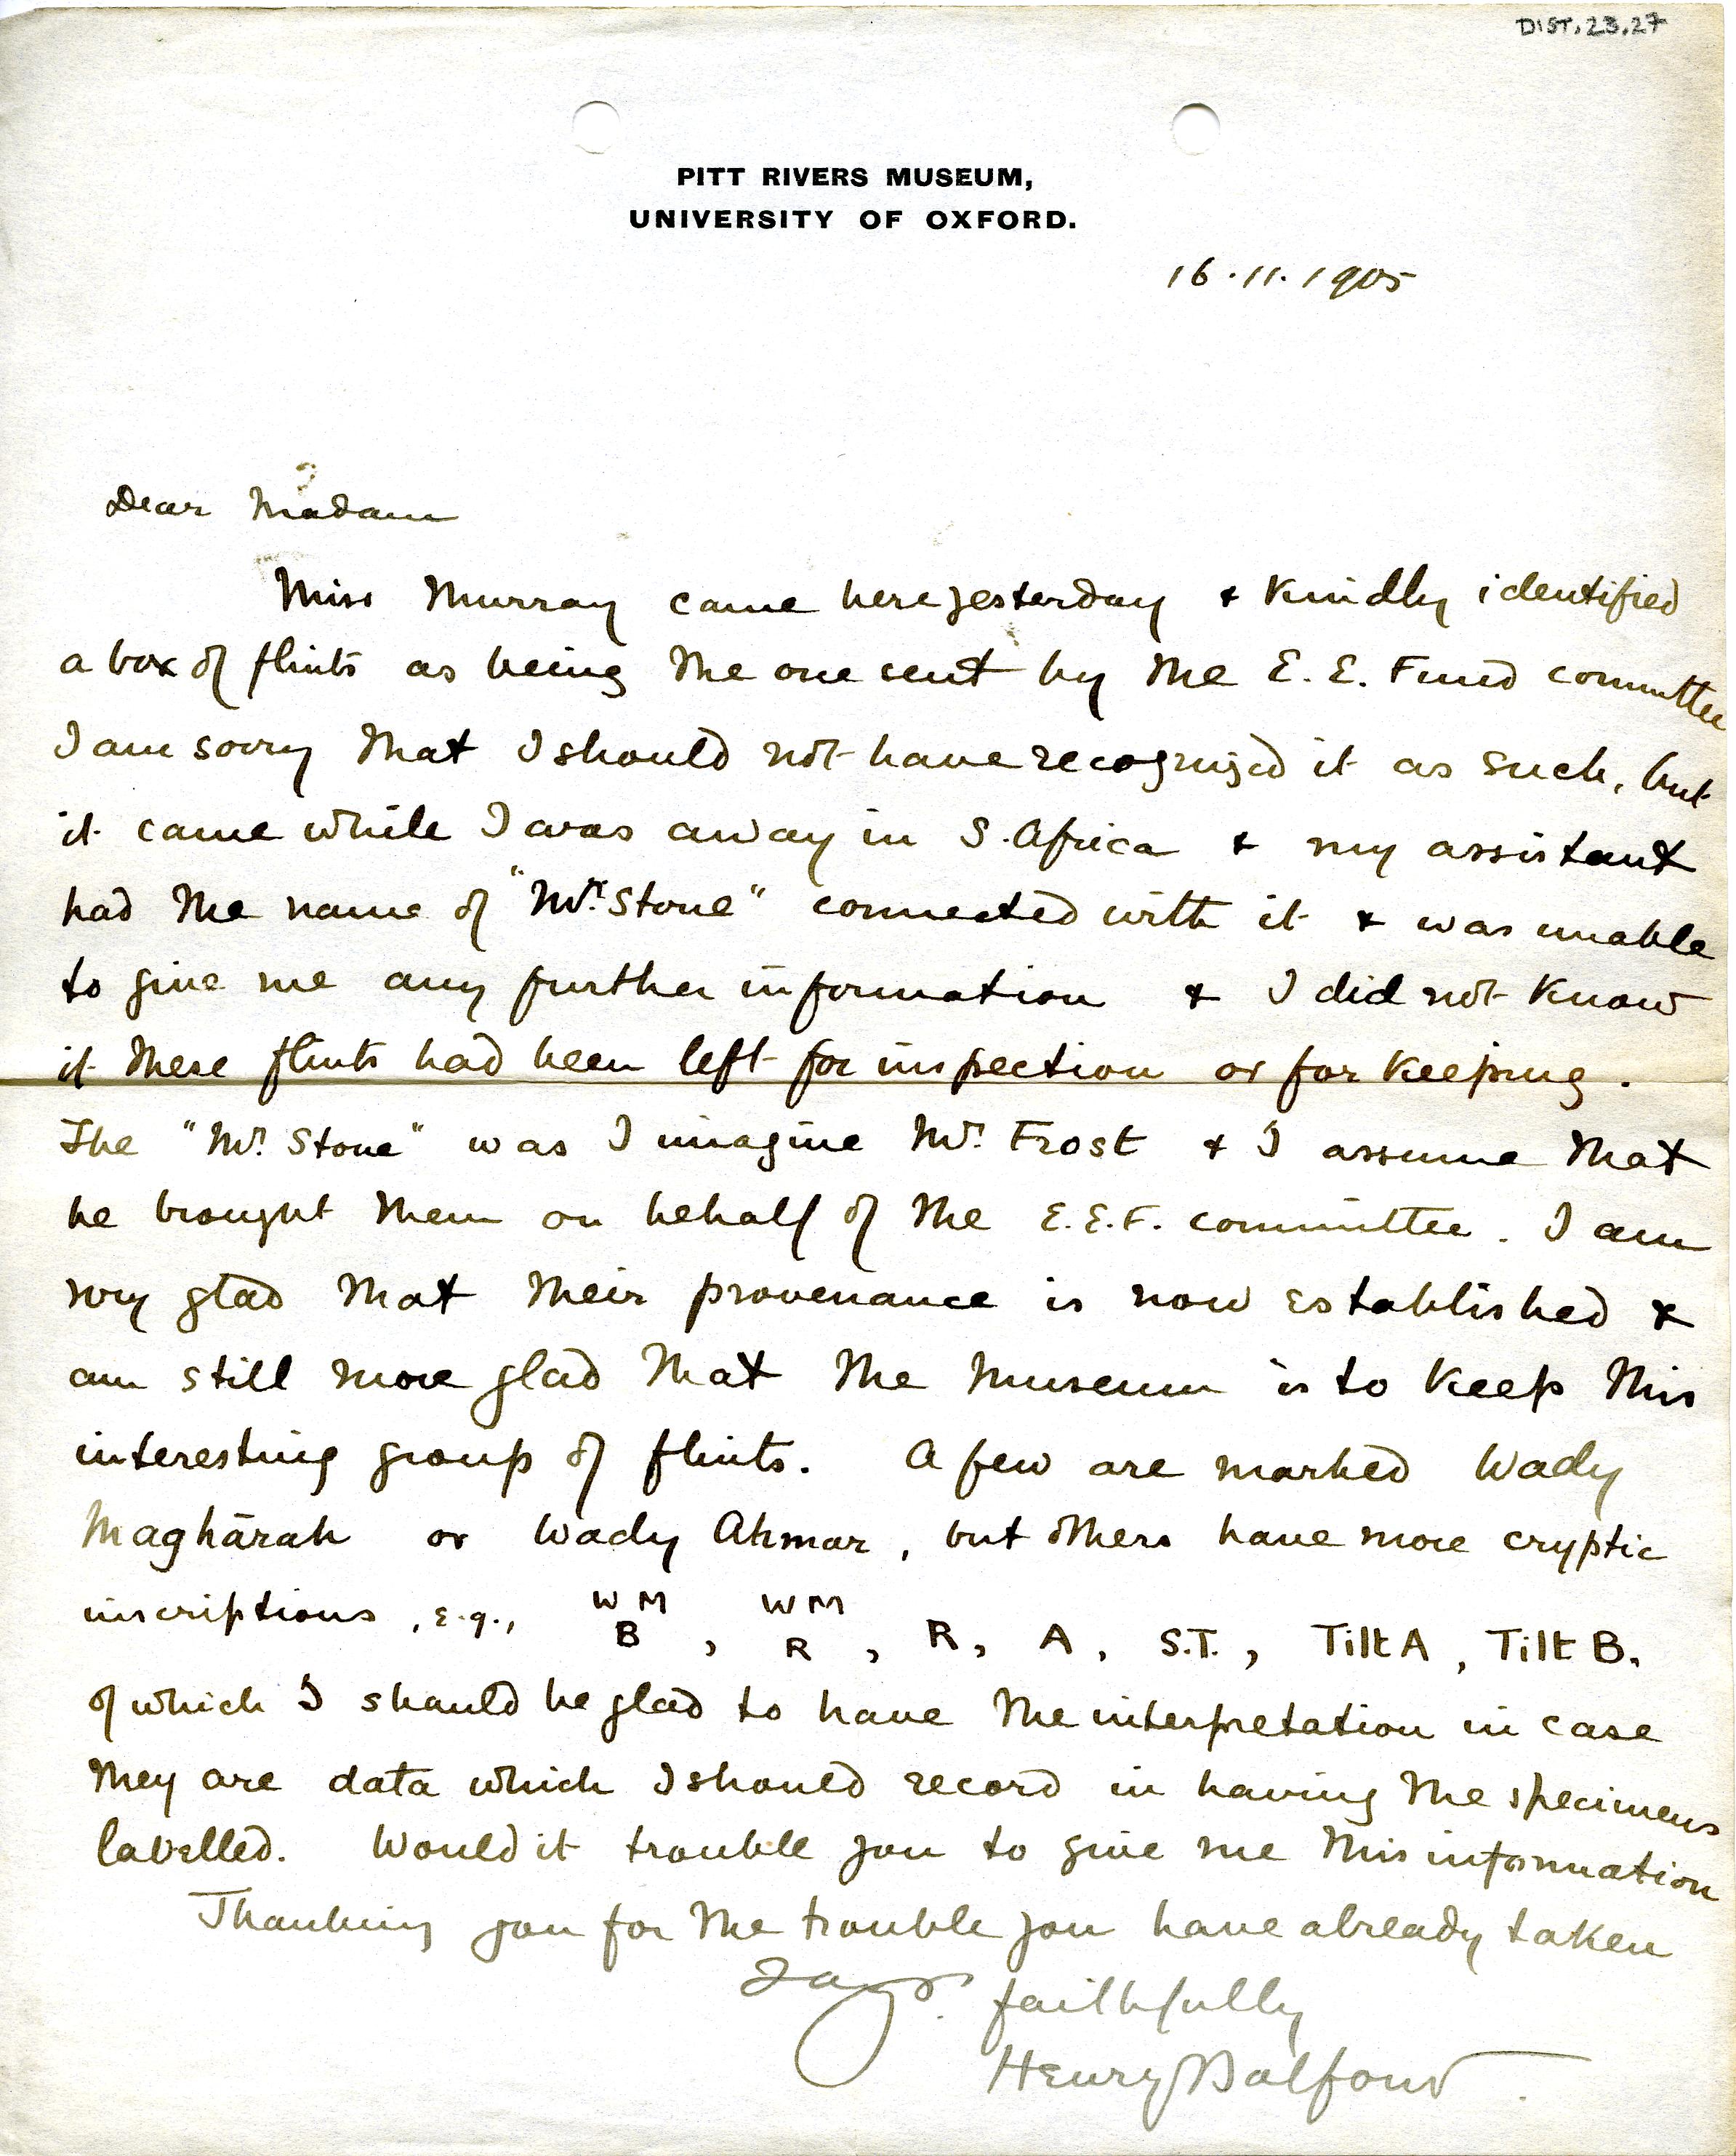 DIST.23.27
PITT RIVERS MUSEUM,
UNIVERSITY OF OXFORD.
16.11.1905
Dear Madam
Miss Murray came here yesterday & kindly identified
a box of flints as being the one sent by the E.E. Fund committee
I am sorry that I should not have recognized it as such, but
it came while I was away in S. Africa & my assistant
had the name of "Mr. Stone" connected with it & was unable
to give me any further information & I did not know
if these flints had been left for inspection or for keeping.
The "Mr. Stone" was I imagine Mr. Frost & I assume that
he brought them on behalf of the E.E.F. committee. I am
very glad that their provenance is now established &
am still more glad that the Museum is to keep this
interesting group of flints. A few are marked Wady
Maghārah or Wady Ahmar, but others have more cryptic
inscriptions, e.g., W M B, W M R, R, A, S.T., Tilt A, Tilt B.
of which I should be glad to have the interpretation in case
they are data which I should record in having the specimens
labelled. Would it trouble you to give me this information
Thanking you for the trouble you have already taken
Yrs. faithfully
Henry Balfour